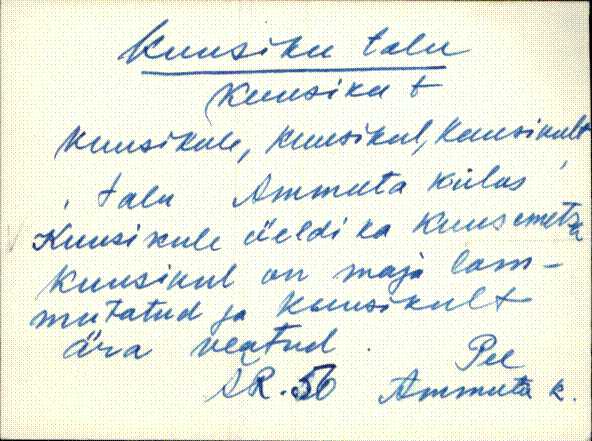 Kuusiku talu
Kuusiku t
Kuusikule, Kuusikul, Kuusikult
, talu Ammuta külas,
Kuusikule öeldi ka Kuusemetsa
Kuusikul on maja lam-
mutatud ja Kuusikult
ära veatud.
Pee
ÄR. 50 Ammuta k.